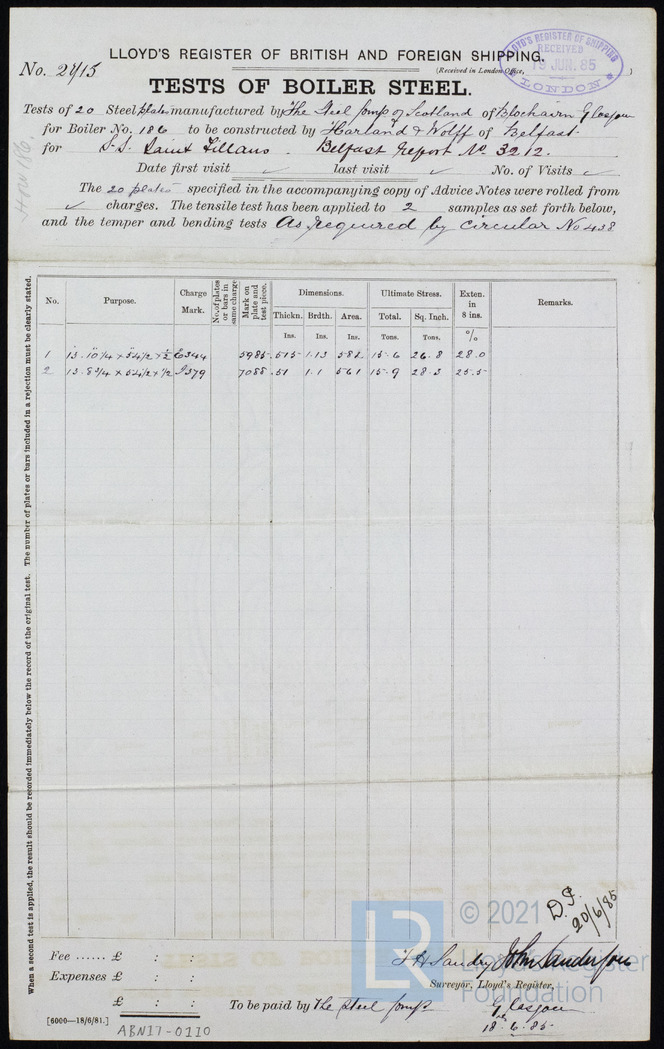 LLOYD'S REGISTER OF BRITISH AND FOREIGN SHIPPING.
No. 2415 (Received in London Office, )
LLOYD'S REGISTER OF SHIPPING RECEIVED 19 JUN. 85 LONDON
TESTS OF BOILER STEEL.
Tests of 20 Steel plates manufactured by The Steel Comp of Scotland of Blochairn Glasgow
for Boiler No. 186 to be constructed by Harland & Wolff of Belfast
for S.S. Saint Fillans. Belfast Report No. 3212.
Date first visit ✓ last visit ✓ No. of Visits ✓
The 20 plates specified in the accompanying copy of Advice Notes were rolled from
✓ charges. The tensile test has been applied to 2 samples as set forth below,
and the temper and bending tests As required by Circular No 438
H&W 186.
When a second test is applied, the result should be recorded immediately below the record of the original test. The number of plates or bars included in a rejection must be clearly stated.
No. Purpose. Charge Mark. No. of plates or bars in same charge Mark on plate and test piece. Dimensions. Ultimate Stress. Exten. in 8 ins. Remarks.
Thickn. Brdth. Area. Total. Sq. Inch.
Ins. Ins. Ins. Tons. Tons. %
1 13.10 1/4 x 54 1/2 x 1/2 6344 5985 .515 1.13 .582 15.6 26.8 28.0
2 13.8 3/4 x 54 1/2 x 1/2 9379 7088 .51 1.1 .561 15.9 28.3 25.5
20/6/85
Fee ...... £ : :
Expenses £ : :
£ : :
John Sanderson
Surveyor, Lloyd's Register,
To be paid by The Steel Comp
Glasgow
18.6.85
[6000—18/6/81.]
ABN17-0110
LR © 2021
Lloyd's Register
Foundation